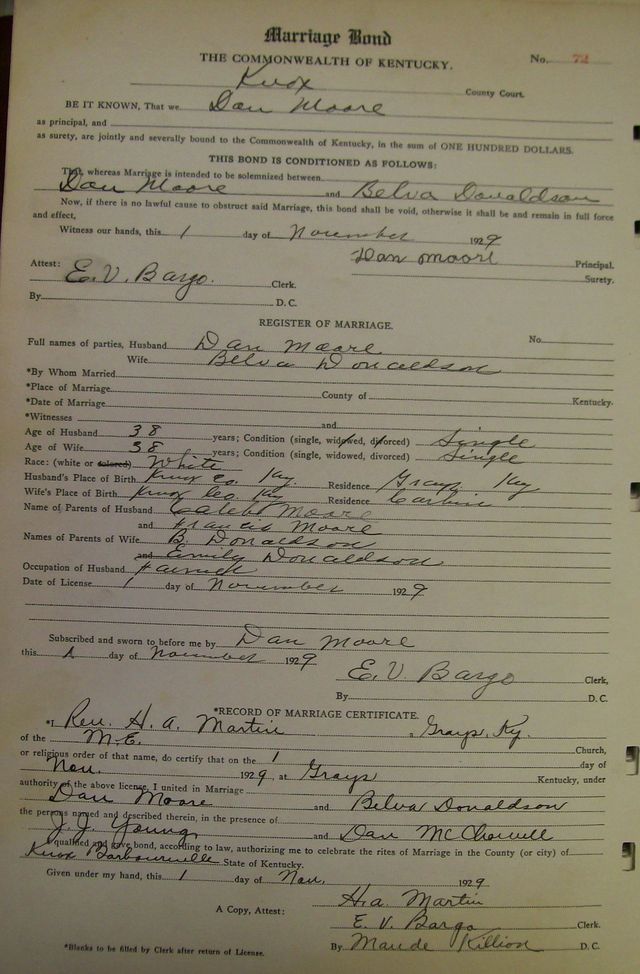 Marriage Bond
THE COMMONWEALTH OF KENTUCKY. No. 72
Knox County Court.
BE IT KNOWN, That we Dan Moore
as principal, and
as surety, are jointly and severally bound to the Commonwealth of Kentucky, in the sum of ONE HUNDRED DOLLARS.
THIS BOND IS CONDITIONED AS FOLLOWS:
That, whereas Marriage is intended to be solemnized between
Dan Moore and Belva Donaldson
Now, if there is no lawful cause to obstruct said Marriage, this bond shall be void, otherwise it shall be and remain in full force
and effect,
Witness our hands, this 1 day of November 1929
Dan Moore Principal.
Attest: Surety.
E. V. Bargo. Clerk.
By D. C.
REGISTER OF MARRIAGE.
Full names of parties, Husband Dan Moore No.
Wife Belva Donaldson
*By Whom Married
*Place of Marriage County of Kentucky.
*Date of Marriage
*Witnesses and
Age of Husband 38 years; Condition (single, widowed, divorced) Single
Age of Wife 38 years; Condition (single, widowed, divorced) Single
Race: (white or colored) White
Husband's Place of Birth Knox Co. Ky. Residence Grays Ky
Wife's Place of Birth Knox Co. Ky Residence Corbin
Name of Parents of Husband Caleb Moore
and Francis Moore
Names of Parents of Wife B. Donaldson
and Emily Donaldson
Occupation of Husband
Date of License 1 day of November 1929
Subscribed and sworn to before me by Dan Moore
this 1 day of November 1929
E. V. Bargo Clerk,
By D. C.
*RECORD OF MARRIAGE CERTIFICATE.
*I Rev. H. A. Martin, Grays, Ky.
of the M.E. Church,
or religious order of that name, do certify that on the 1 day of
Nov. 1929, at Grays Kentucky, under
authority of the above license, I united in Marriage
Dan Moore and Belva Donaldson
the persons named and described therein, in the presence of
J. J. Young and Dan
qualified and gave bond, according to law, authorizing me to celebrate the rites of Marriage in the County (or city) of
Knox Barbourville State of Kentucky.
Given under my hand, this 1 day of Nov. 1929
H. A. Martin
A Copy, Attest: E. V. Bargo Clerk.
By Maude Killion D. C.
*Blanks to be filled by Clerk after return of License.